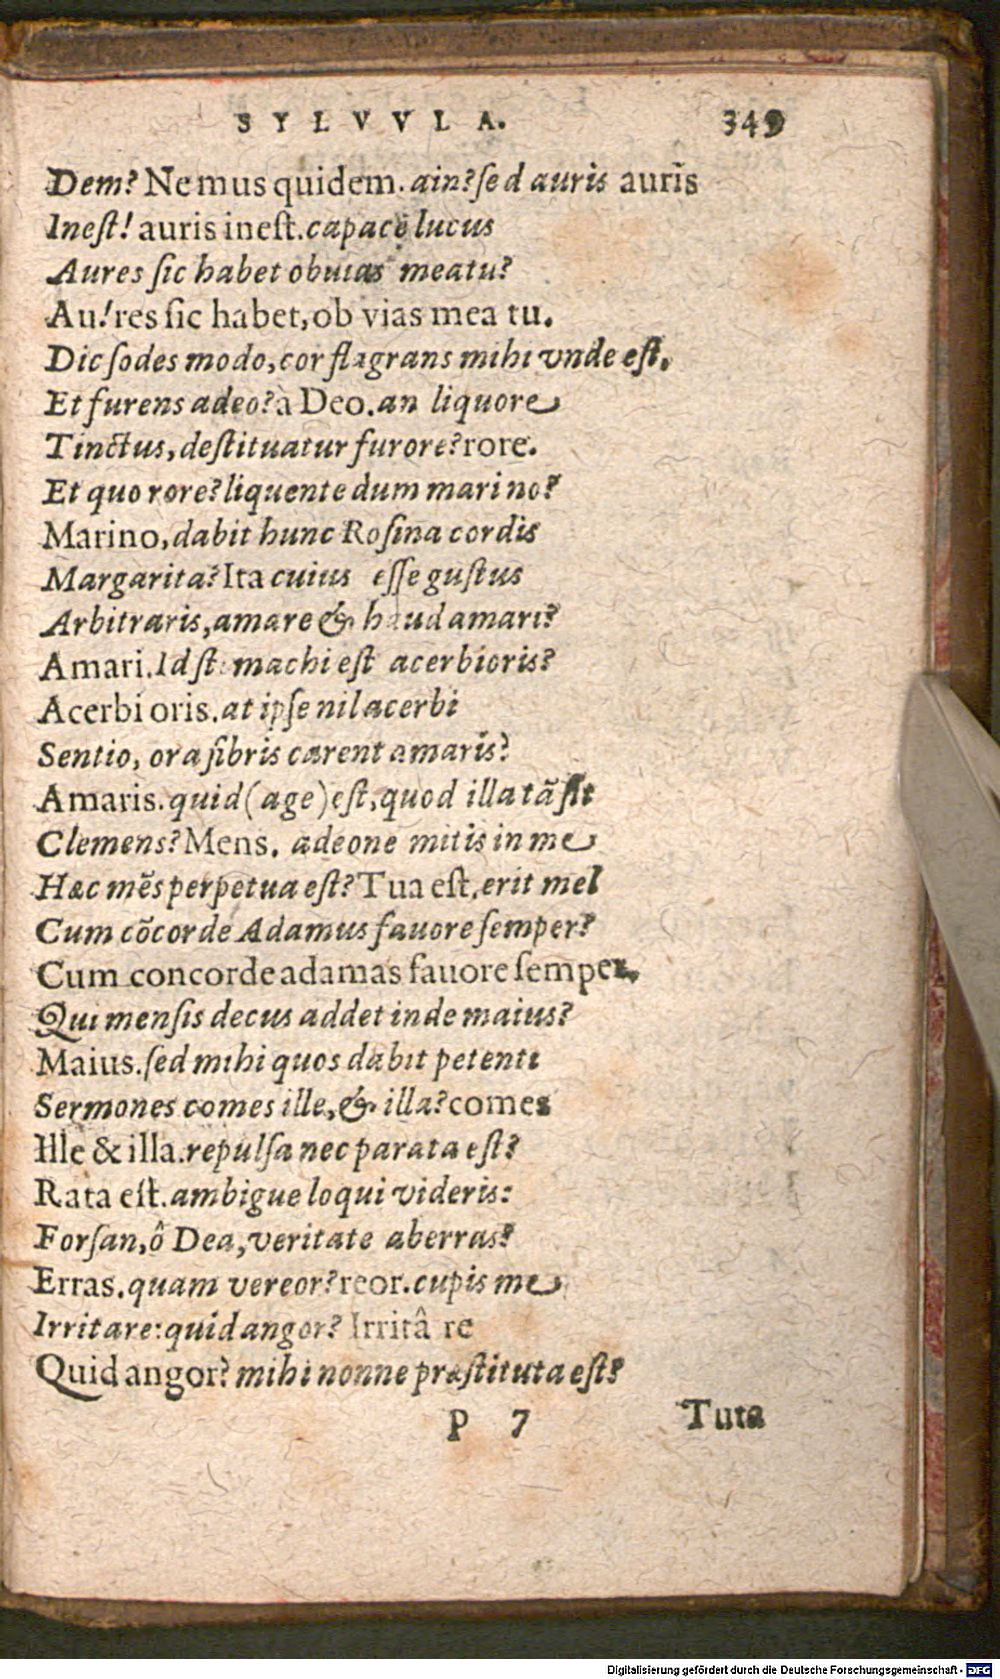 SYLVVLA. 349
Dem? Ne mus quidem. ain? ſed auris aurĩs
Ineſt! auris ineſt. capace lucus
Aures ſic habet obuias meatu?
Au! res ſic habet, ob vias mea tu.
Dic ſodes modo, cor flagrans mihi vnde eſt,
Et furens adeo? à Deo. an liquore
Tinctus, deſtituatur furore? rore.
Et quo rore? liquente dum marino?
Marino, dabit hunc Roſina cordis
Margarita? Ita cuius eſſe guſtus
Arbitraris, amare & haud amari?
Amari. Id ſtomachi eſt acerbioris?
Acerbi oris. at ipſe nil acerbi
Sentio, ora fibris carent amaris?
Amaris. quid (age) eſt, quod illa tã ſit
Clemens? Mens. adeone mitis in me
Hæc mẽs perpetua eſt? Tua eſt, erit mel
Cum cõcorde Adamus fauore ſemper?
Cum concorde adamas fauore ſemper.
Qui menſis decus addet inde maius?
Maius. ſed mihi quos dabit petenti
Sermones comes ille, & illa? comes
Ille & illa. repulſa nec parata eſt?
Rata eſt. ambigue loqui videris:
Forſan, ô Dea, veritate aberras?
Erras. quam vereor? reor. cupis me
Irritare: quid angor? Irritâ re
Quid angor? mihi nonne præſtituta eſt?
P 7 Tuta
Digitalisierung gefördert durch die Deutsche Forschungsgemeinschaft - DFG